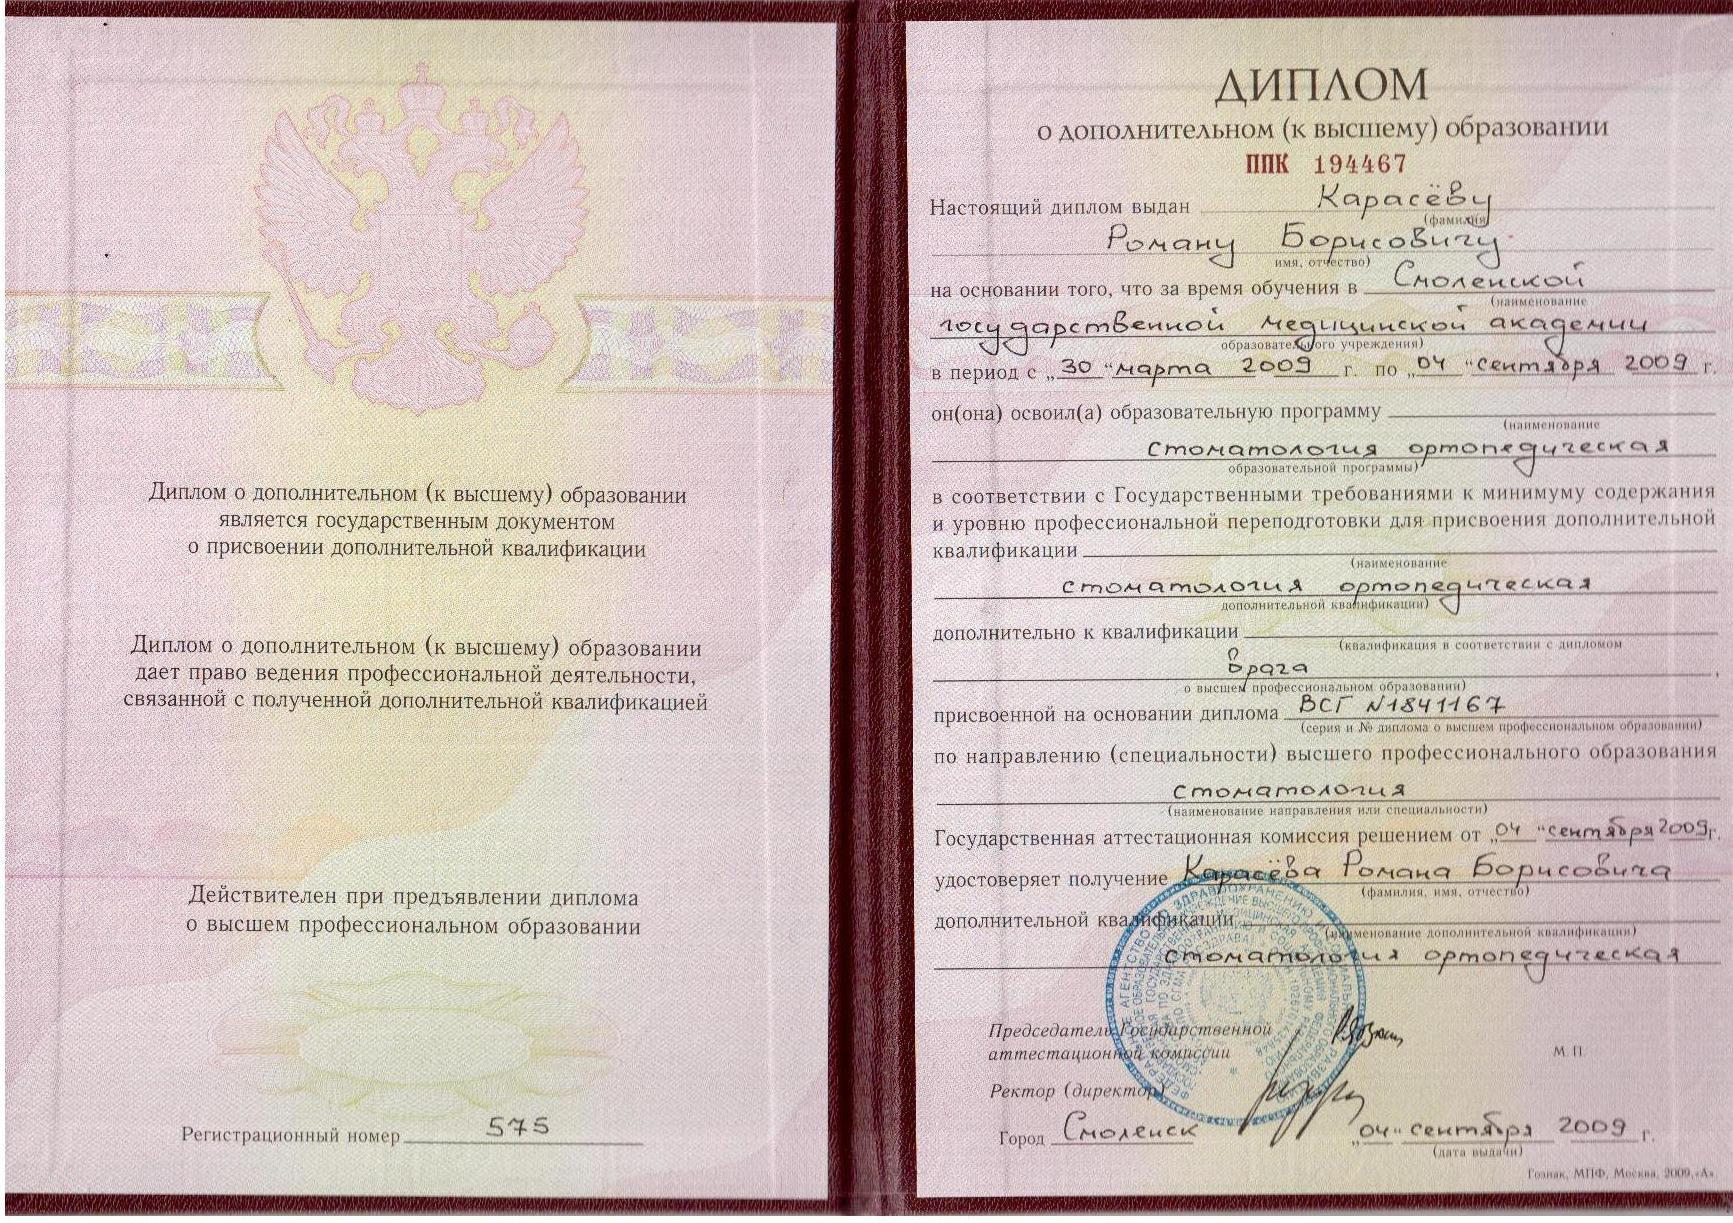 Диплом о дополнительном (к высшему) образовании
является государственным документом
о присвоении дополнительной квалификации
Диплом о дополнительном (к высшему) образовании
дает право ведения профессиональной деятельности,
связанной с полученной дополнительной квалификацией
Действителен при предъявлении диплома
о высшем профессиональном образовании
Регистрационный номер 575
ДИПЛОМ
о дополнительном (к высшему) образовании
ППК 194467
Настоящий диплом выдан Карасёву
(фамилия)
Роману Борисовичу
имя, отчество)
на основании того, что за время обучения в Смоленской
(наименование
государственной медицинской академии
образовательного учреждения)
в период с „30 “ марта 2009 г. по „04 “ сентября 2009 г.
он(она) освоил(а) образовательную программу
(наименование
стоматология ортопедическая
образовательной программы)
в соответствии с Государственными требованиями к минимуму содержания
и уровню профессиональной переподготовки для присвоения дополнительной
квалификации
(наименование
стоматология ортопедическая
дополнительной квалификации)
дополнительно к квалификации
(квалификация в соответствии с дипломом
Врача
о высшем профессиональном образовании)
присвоенной на основании диплома ВСГ №1841167
(серия и № диплома о высшем профессиональном образовании)
по направлению (специальности) высшего профессионального образования
стоматология
(наименование направления или специальности)
Государственная аттестационная комиссия решением от „04 “ сентября 2009г.
удостоверяет получение Карасёва Романа Борисовича
(фамилия, имя, отчество)
дополнительной квалификации
(наименование дополнительной квалификации)
стоматология ортопедическая
Председатель Государственной
аттестационной комиссии
М П
Ректор (директор)
Город Смоленск „04“ сентября 2009 г.
(дата выдачи)
Гознак, МПФ, Москва, 2009, «А».